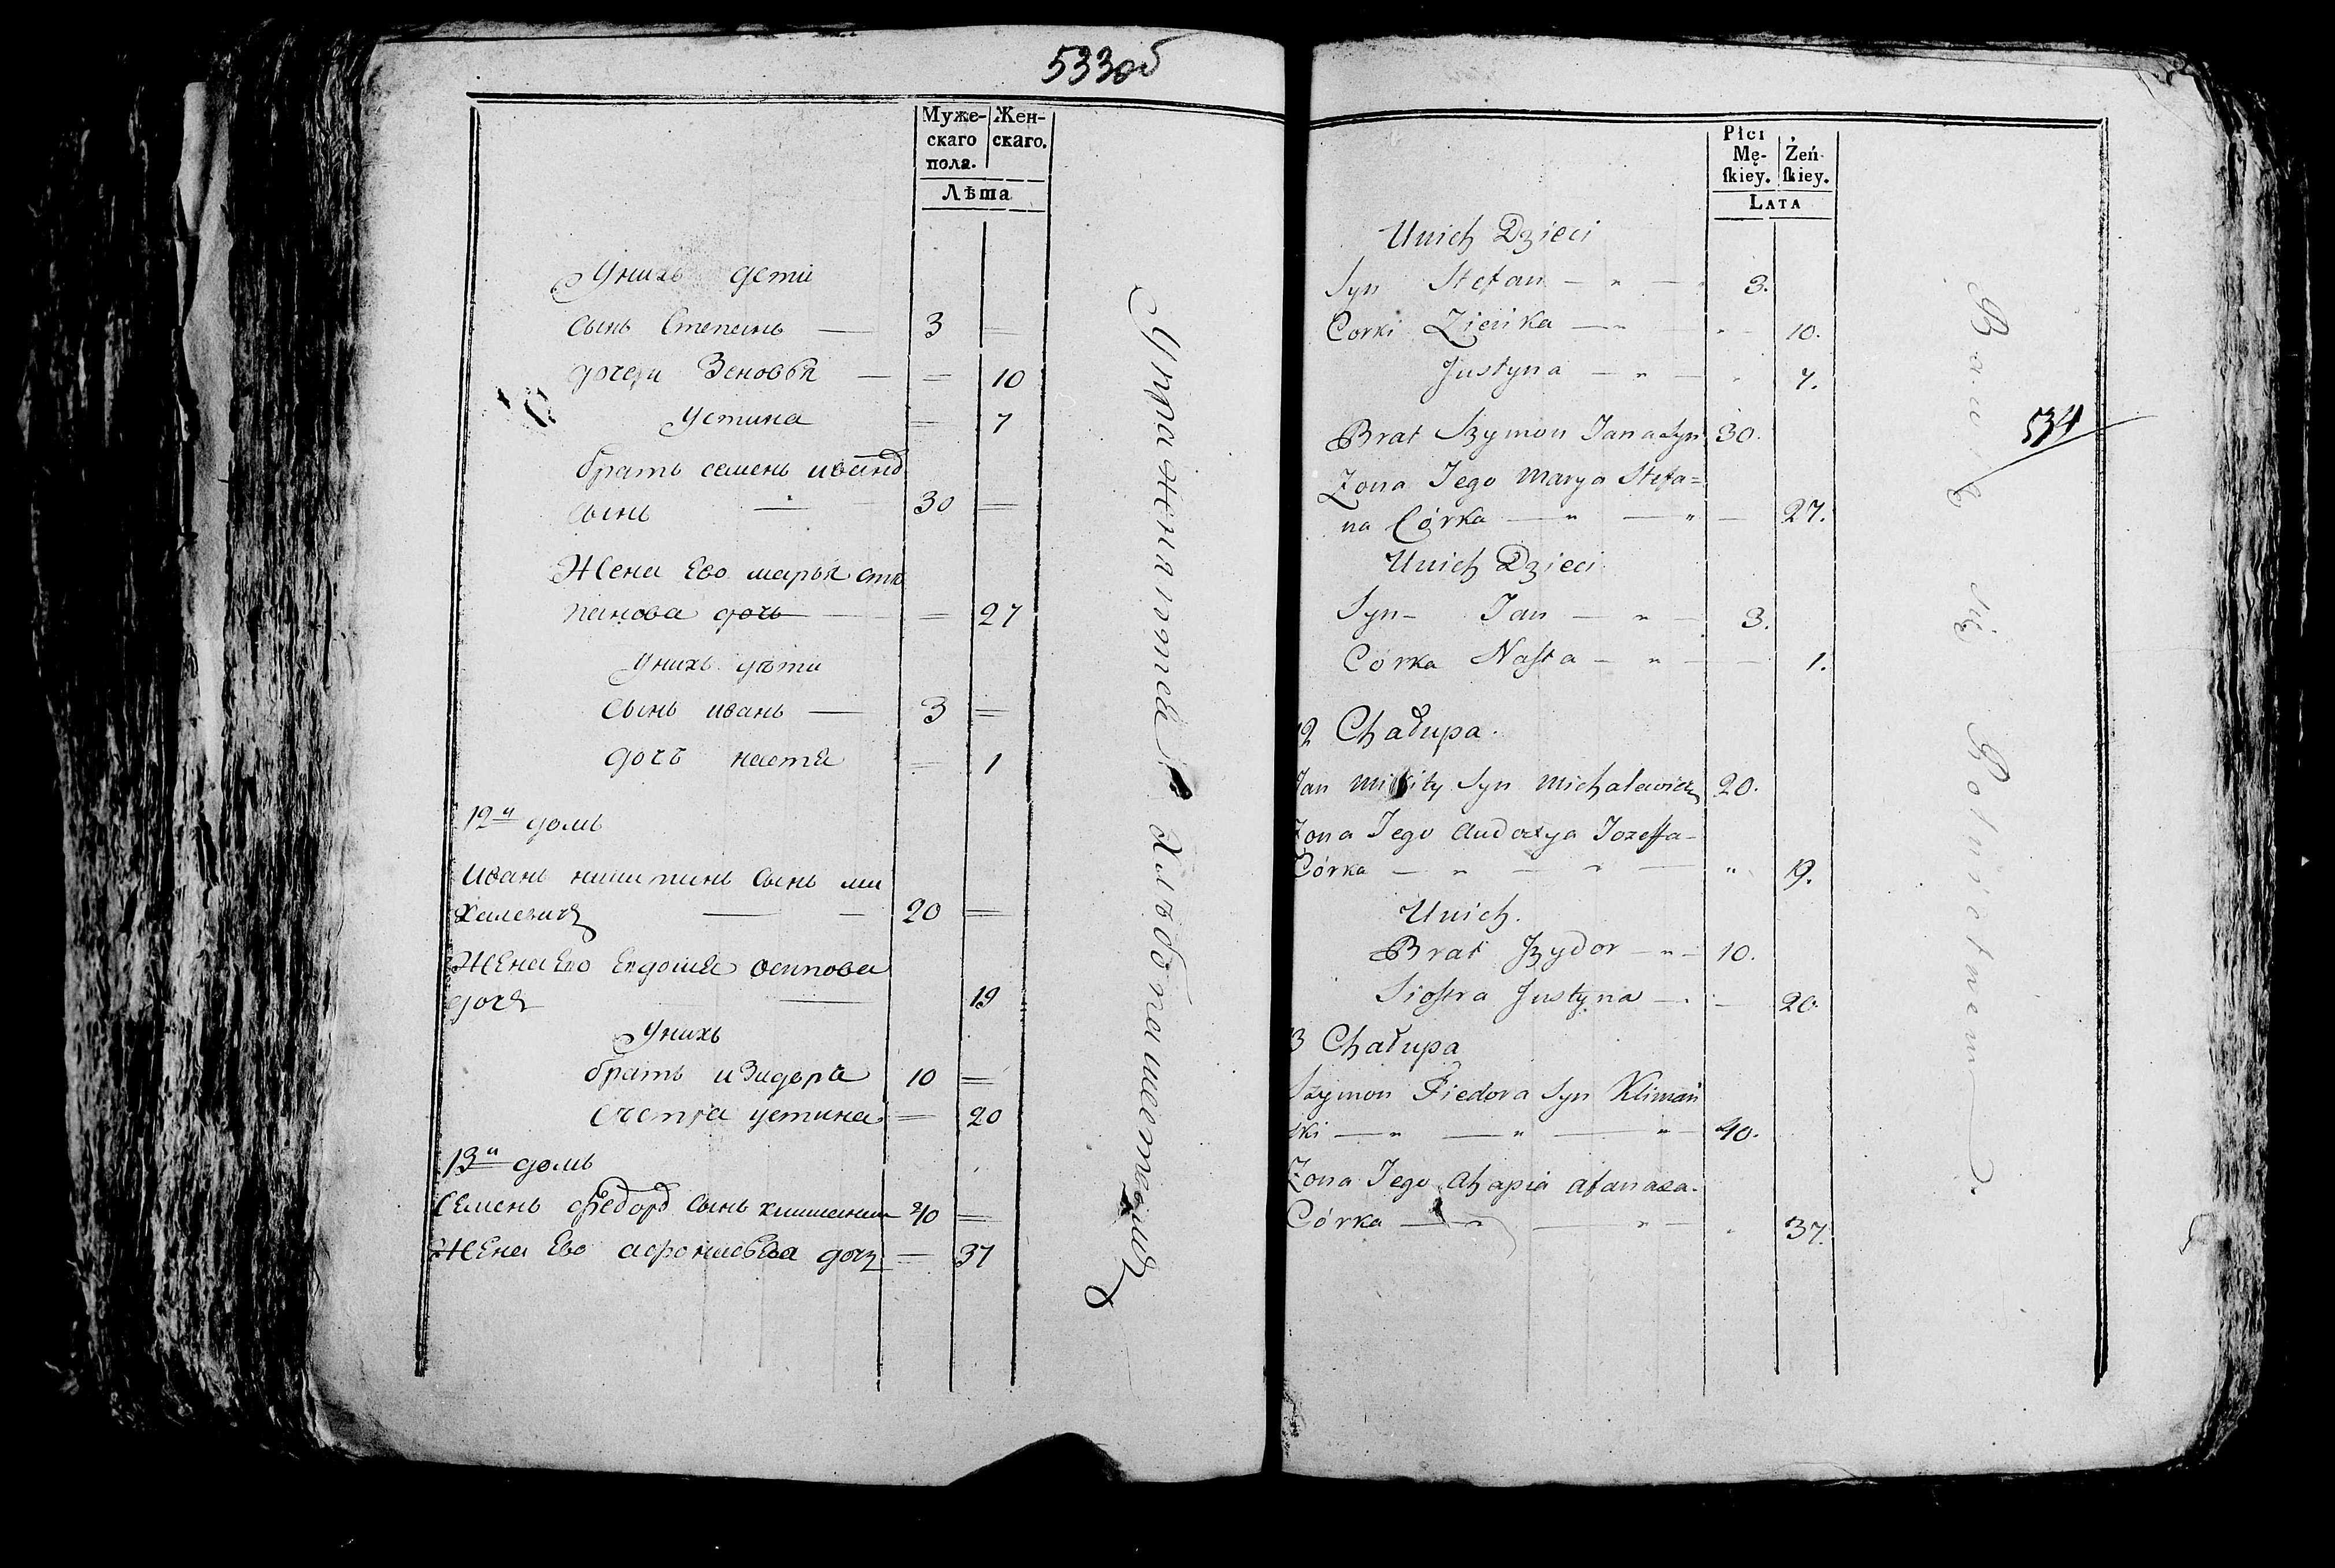 533об
Муже-
скаго
пола.
Жен-
скаго.
Лѣта
Унихъ дети
сынъ Степанъ — 3 =
дочери Зеновья — = 10
Устина = 7
братъ семенъ иванд
сынъ — 30 =
Жена Ево марья сте
панова дочь — = 27
Унихъ дѣти
Сынъ иванъ — 3 =
дочъ настя = 1
12й домъ
Иванъ никитинъ сынъ ми
халевичъ — — 20 =
Жена Ево Евдокия осипова
дочъ — 19
Унихъ
братъ изидоръ 10 =
Сестра устина = 20
13й домъ
Семенъ Федорд сынъ 40 =
Жена Ево афонасьева дочъ = 37
Упражняются Хлѣбопашествомъ
Płci
Mę-
ſkiey.
Żeń-
ſkiey.
LATA
Unich Dzieci
Syn Stefan — " — 3.
Corki Zieńka — " — 10.
Justyna — " — " 7.
Brat Szymon Jana Syn 30.
Zona Jego Marya Stefa=
na Córka — " — " — 27.
Unich Dzieci
Syn — Jan — " — 3.
Córka Naſta — " — — 1.
12 Chałupa.
Jan Mikity Syn Michalewicz 20.
Zona Jego Audotya Jozeffa-
Córka — " — " — " 19.
Unich.
Brat Jzydor — " — 10.
Sioſtra Justyna — . — 20.
13 Chałupa
Szymon Fiedora Syn Klimań
ski — " — " — " — 40.
Zona Jego Ahapia Afanasa-
Córka — " — " — " 37.
Bawią się Rolnictwem
534